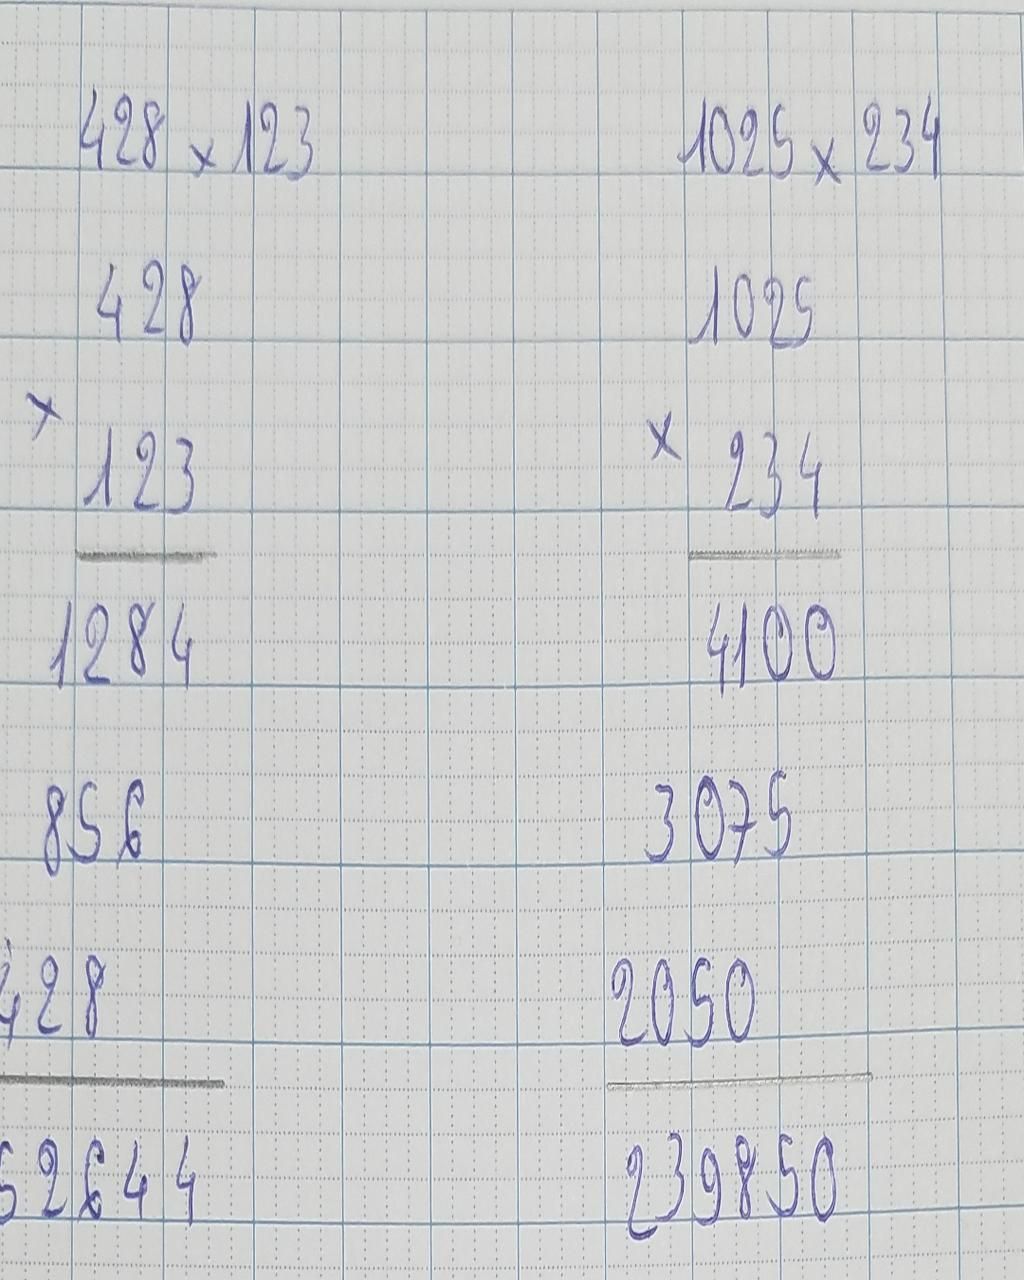 428 x 123
428
x
123
1284
856
428
52644
1025 x 234
1025
x
234
4100
3075
2050
239850